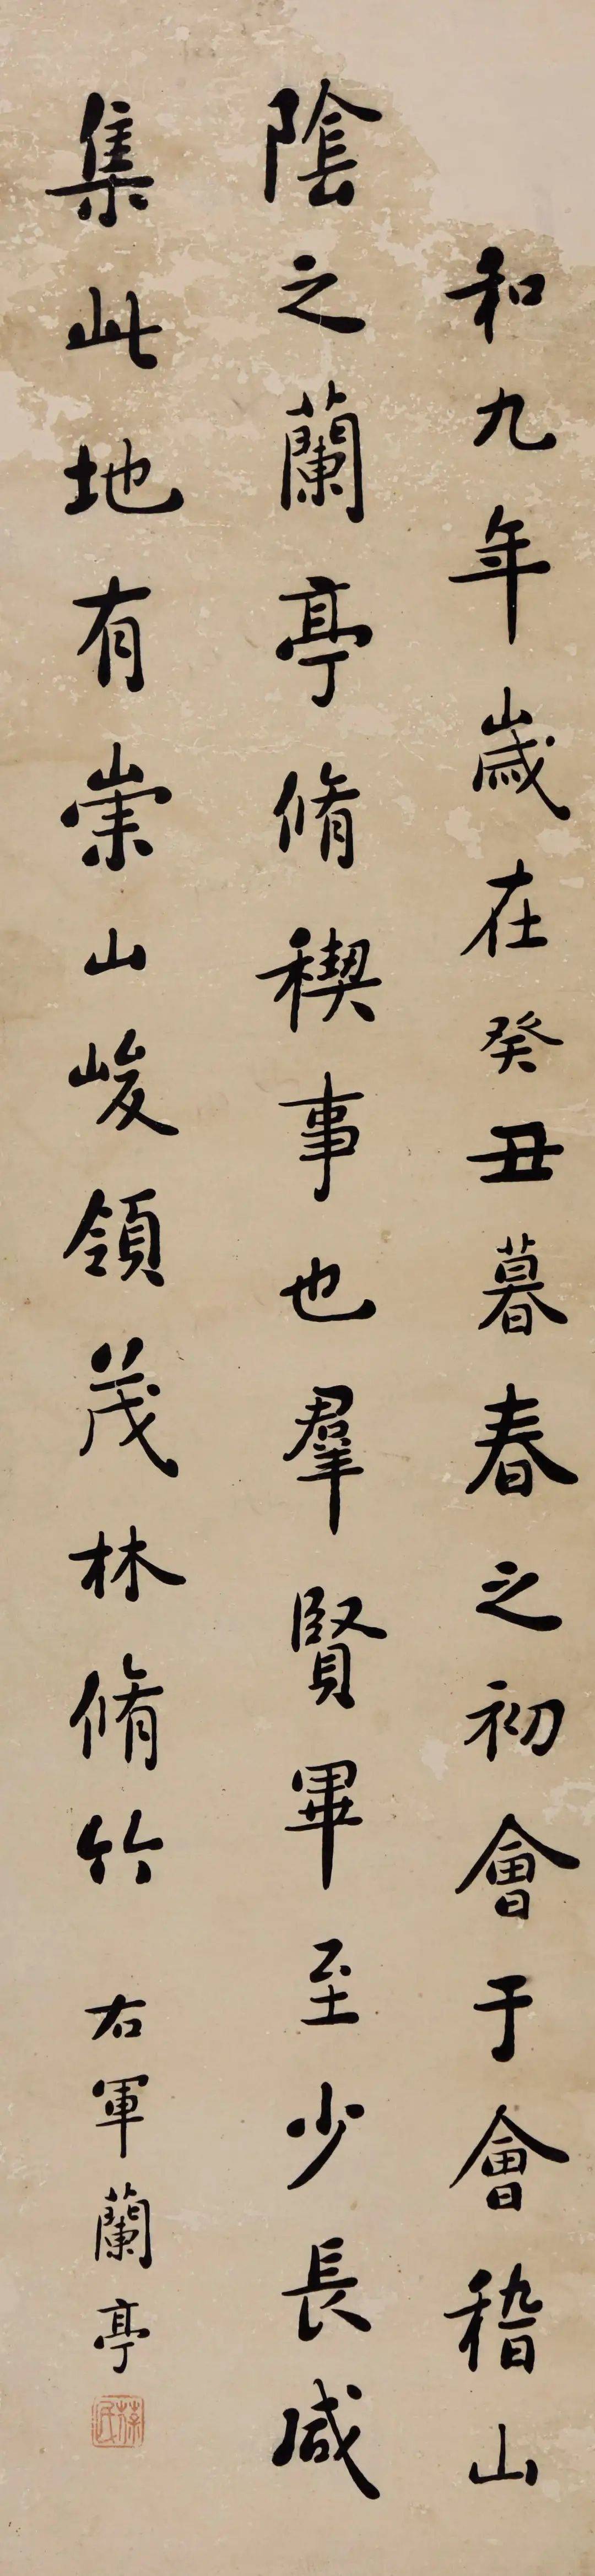 和九年歲在癸丑暮春之初會于會稽山
陰之蘭亭脩稧事也羣賢畢至少長咸
集此地有崇山峻領茂林脩竹
右軍蘭亭